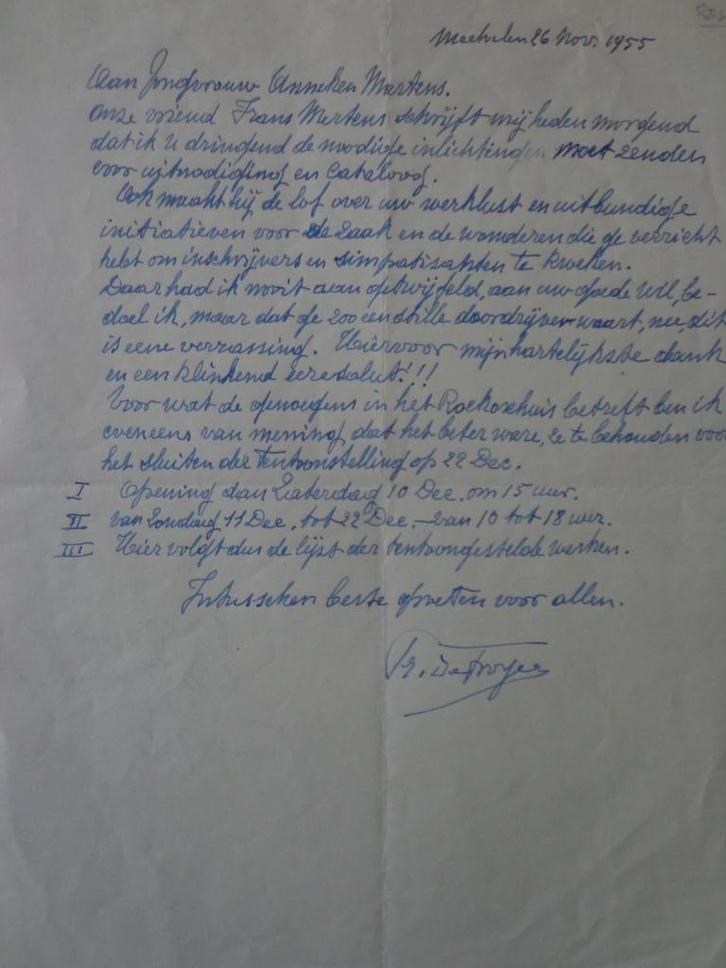 Mechelen 26 Nov. 1955
Aan Jongvrouw Anneken Mertens.
Onze vriend Frans Mertens schrijft mij heden morgend
dat ik U dringend de nodige inlichtingen moet zenden
voor uitnodiging en Cataloog.
Ook maakt hij de lof over uw werklust en uitbundige
initiatieven voor de zaak en de wonderen die ge verricht
hebt om inschrijvers en simpatisanten te kweken.
Daar had ik nooit aan getwijfeld, aan uw goede wil, be-
doel ik, maar dat ge zoo een stille doordrijver waart, nee, dit
is eene verrassing. Hiervoor mijn hartelijkste dank
en een klinkend eeresaluut!!!
Voor wat de genoegens in het Rockoxhuis betreft ben ik
eveneens van mening, dat het beter ware, ze te behouden voor
het sluiten der tentoonstelling op 22 Dec.
I Opening dan Zaterdag 10 Dec. om 15 uur.
II van Zondag 11 Dec. tot 22 Dec. - van 10 tot 18 uur.
III Hier volgt dus de lijst der tentoongestelde werken.
Intusschen beste groeten voor allen.
Pr. De Troyer